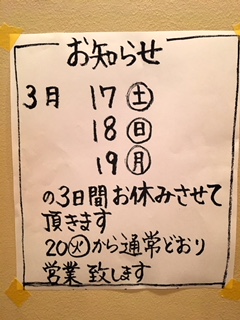 お知らせ
3月 17㊏
18㊐
19㊊
の3日間お休みさせて
頂きます
20㊋から通常どおり
営業致します